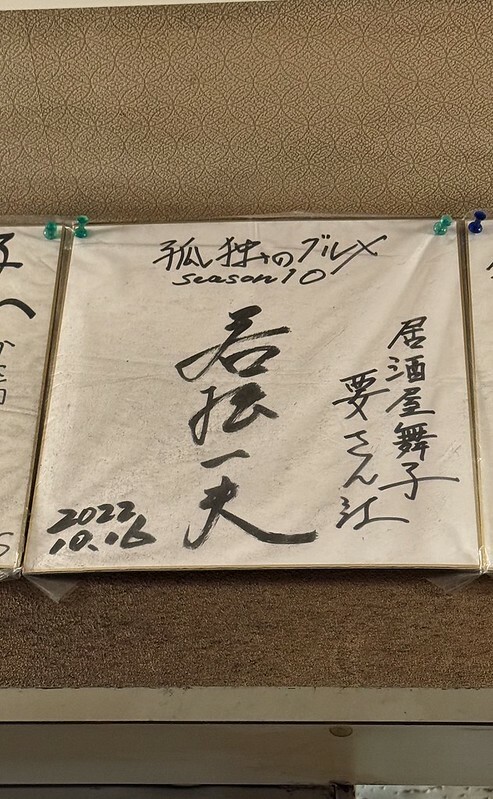 孤独のグルメ
season10
居酒屋舞子
要さん江
若松一夫
2022
10.16